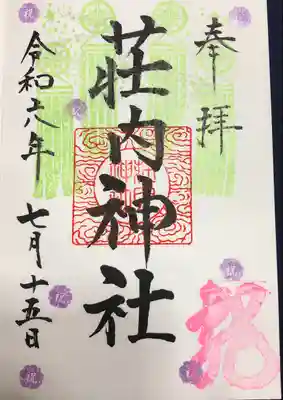 奉拝
荘内神社
令和六年 七月十五日
祝